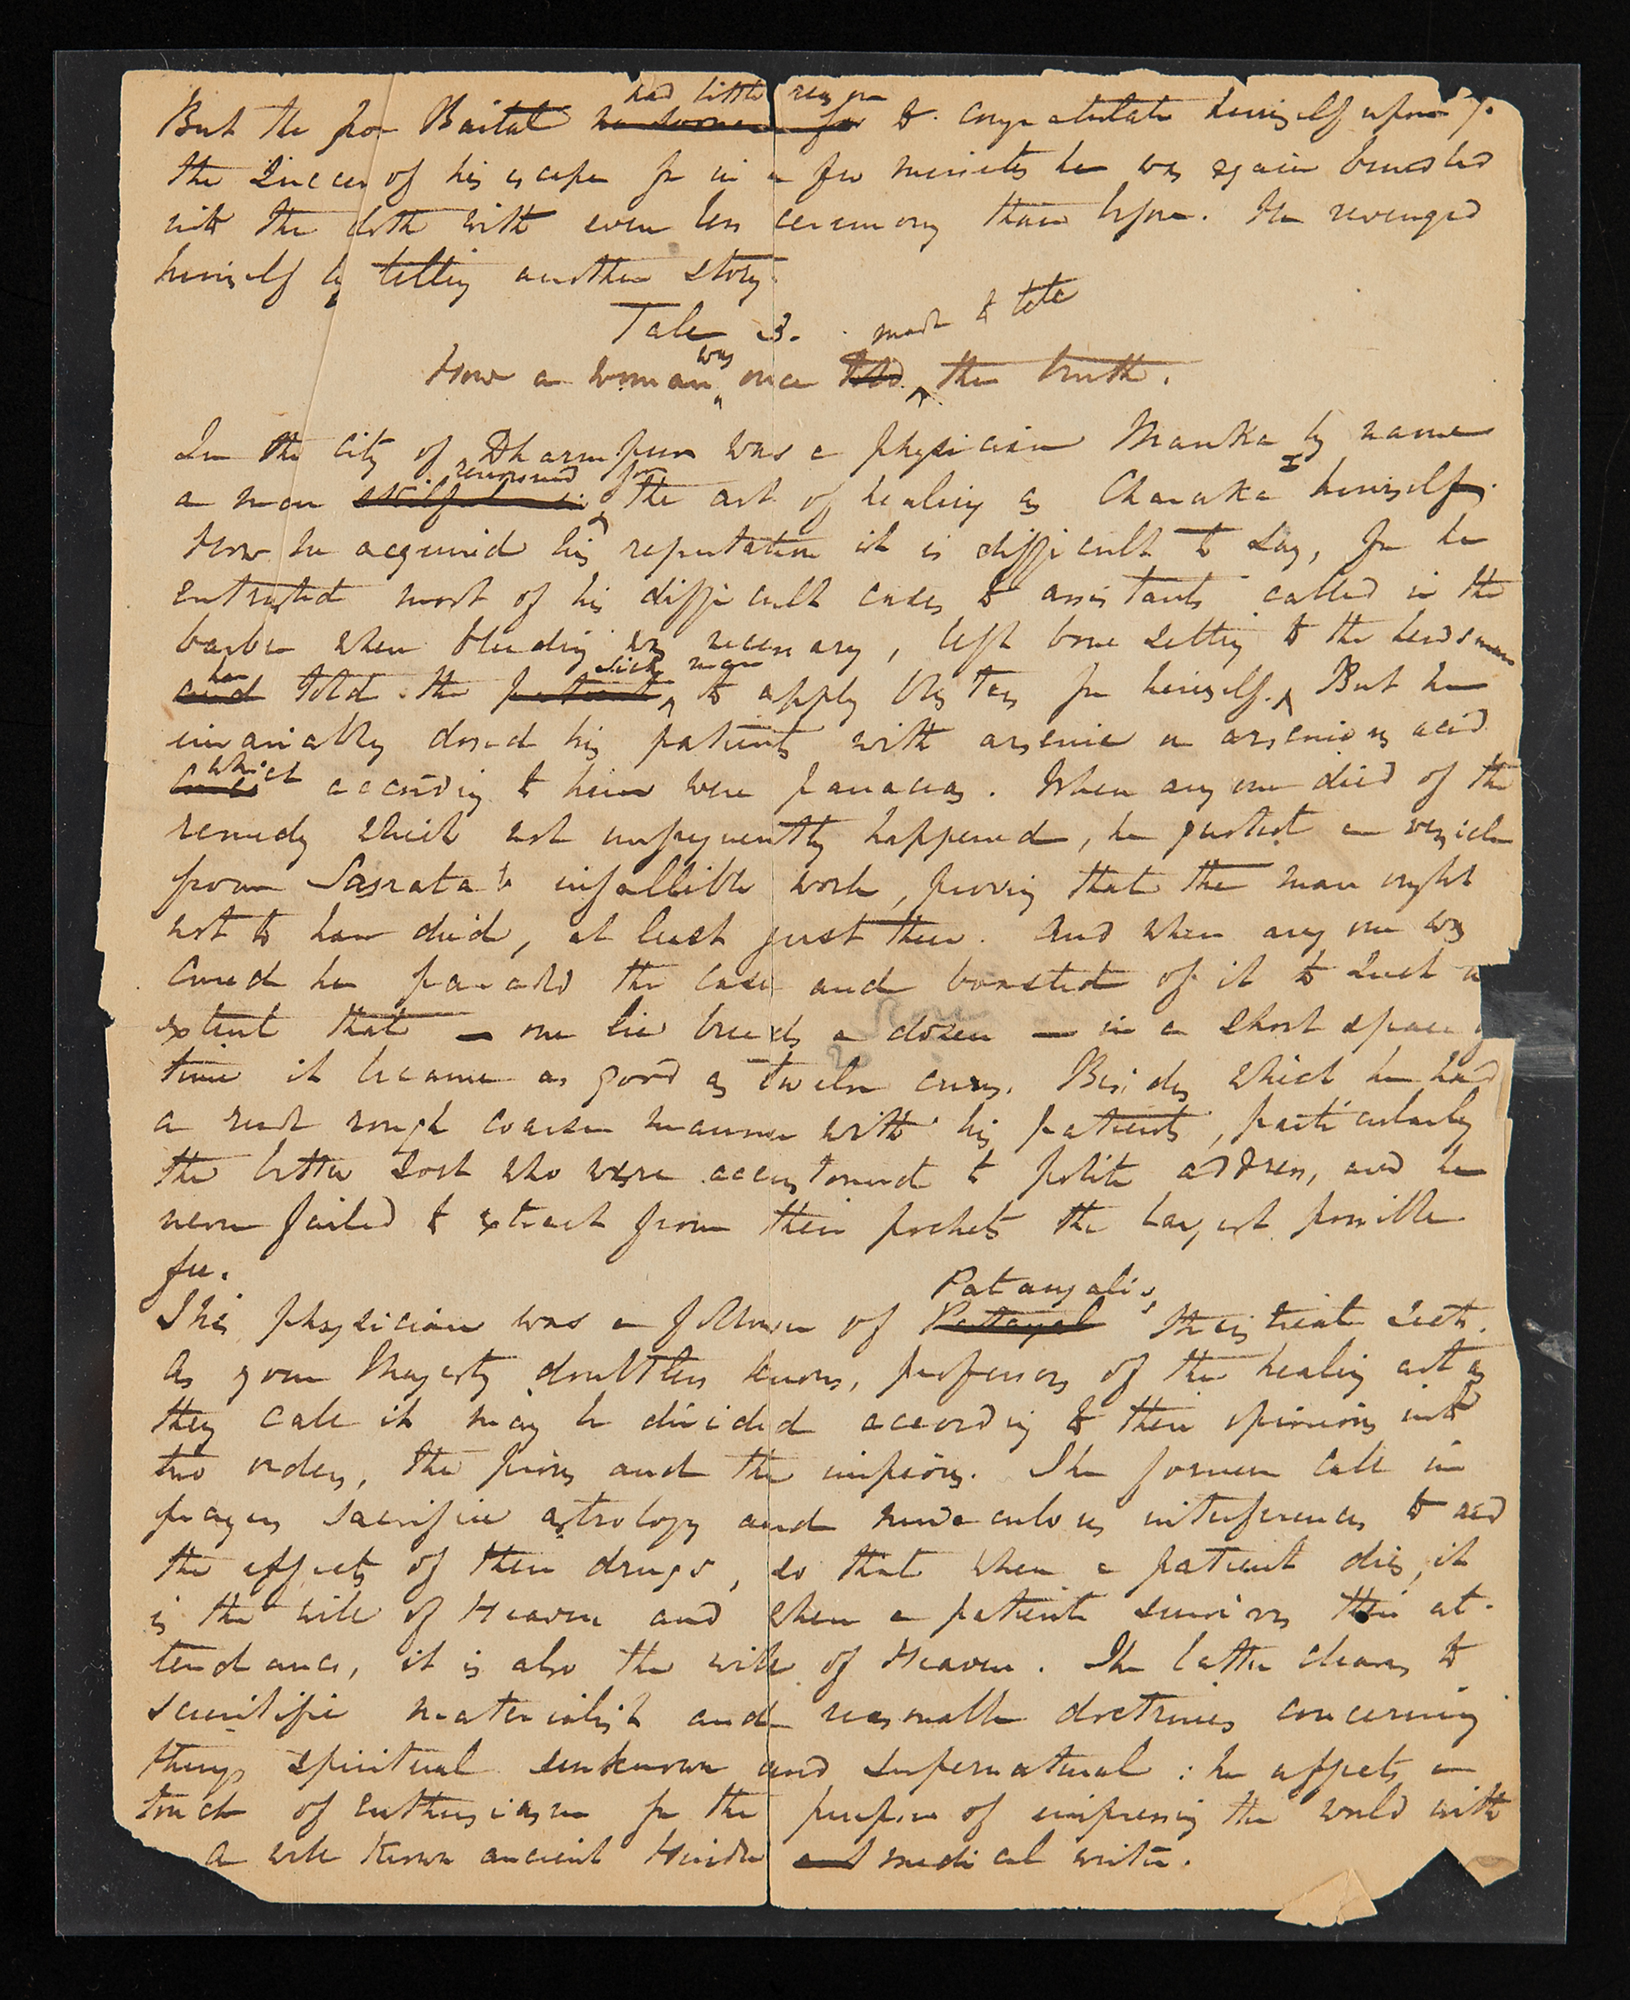 had little reason
But the poor Baital no sooner for to congratulate himself upon
the success of his escape for in a few minutes he was again bundled
into the cloth with even less ceremony than before. He revenged
himself by telling another story.
Tale 3. made to tell
How a woman was once told the truth.
In the city of Dharmpur was a physician Manka by name
renowned for
a man skilful in the art of healing as Charaka himself.
How he acquired his reputation it is difficult to say, for he
entrusted most of his difficult cases to assistants called in the
barber when bleeding was necessary, left bone setting to the herdsman
he sick man
and told the patient to apply blisters for himself. But he
invariably dosed his patients with arsenic or arsenious acid
which
according to him were panaceas. When any one died of the
remedy which not unfrequently happened, he quoted a
from Sasrata's infallible work, proving that the man ought
not to have died, at least just then. And when any one was
cured he paraded the case and boasted of it to such an
extent that — one lie breeds a dozen — in a short space of
time it became as good as twelve cures. Besides which he had
a rude rough coarse manner with his patients, particularly
the better sort who were accustomed to polite address, and he
never failed to extract from their pockets the largest possible
fee.
Patanjali's
This physician was a follower of Patanjal theistical sect.
As your Majesty doubtless knows, professors of the healing art as
they call it may be divided according to their opinions into
two orders, the pious and the impious. The former call in
prayers sacrifice astrology and miraculous interferences to aid
the effects of their drugs, so that when a patient dies, it
is the will of Heaven and when a patient survives their at-
tendance, it is also the will of Heaven. The latter cleaves to
scientific materialist and reasonable doctrines concerning
things spiritual unknown and supernatural : he affects a
touch of enthusiasm for the purpose of impressing the world with
A well known ancient Hindu and medical writer.